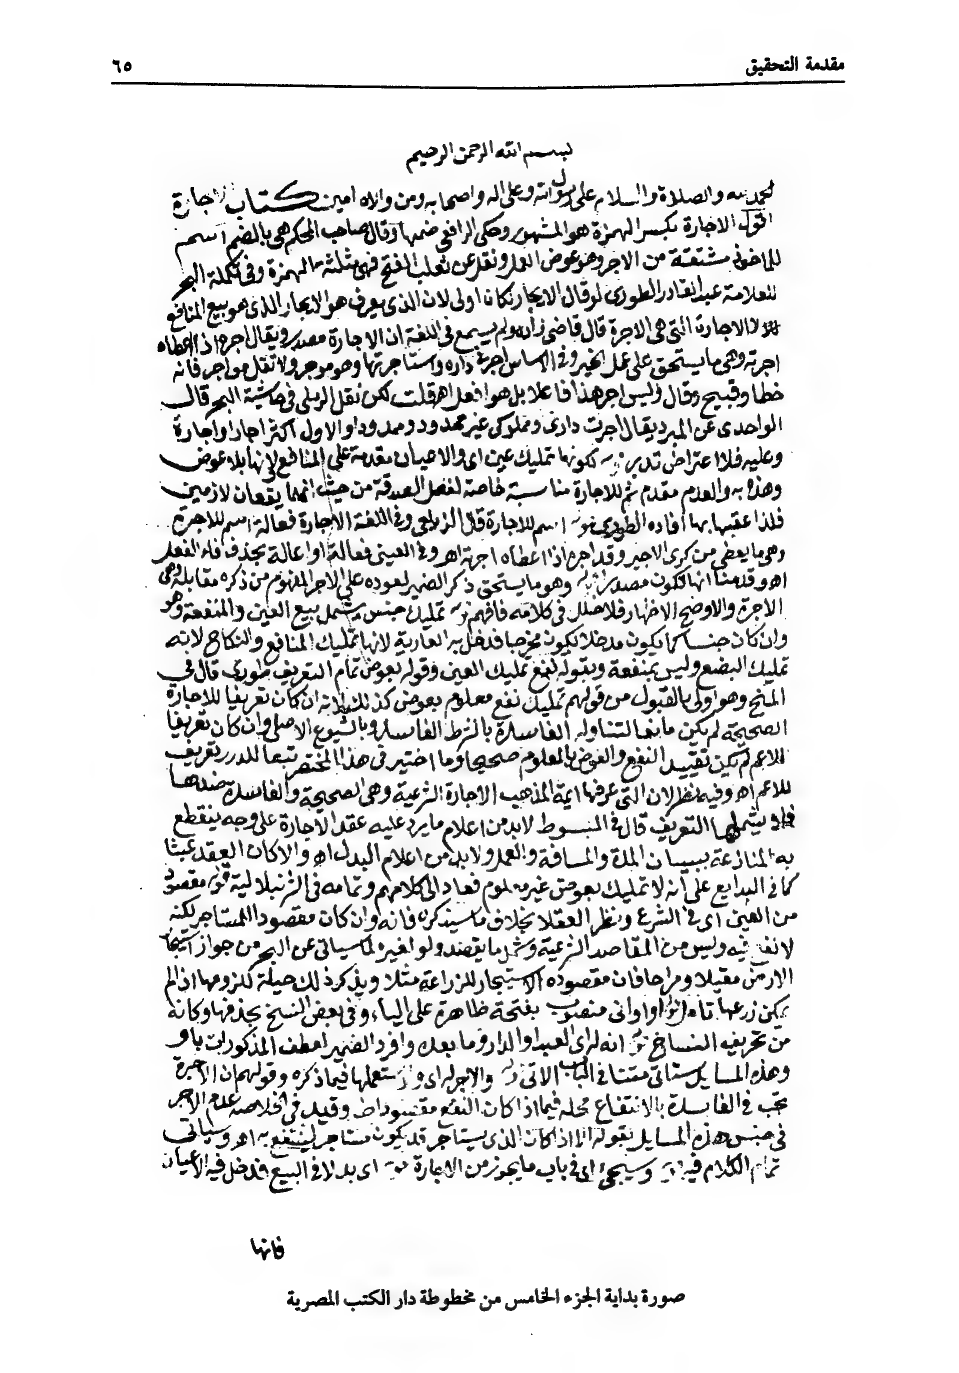 مقدمة التحقيق
٦٥
بسم الله الرحمن الرحيم
الحمد لله والصلاة والسلام على رسول الله وعلى اله واصحابه ومن والاه امين كتاب الاجارة
اقول الاجارة بكسر الهمزة هو المشهور وحكى الرافعي ضمها وقال صاحب المحكم هي بالضم اسم
للماخوذ مشتقة من الاجر وهو عوض العمل ونقل عن ثعلب الفتح فهي مثلثة الهمزة وفي تكملة البحر
للعلامة عبد القادر الطوري لو قال الايجار لكان اولى لان الذي يعرف هو الايجار الذي هو بيع المنافع
لا الاجارة التي هي الاجرة قال قاضي زاده ولم يسمع في اللغة ان الاجارة مصدر ويقال اجره اذا اعطاه
اجرته وهي ما يستحق على عمل الخير وفي الاساس اجرني داره واستاجرتها وهو موجر ولا تقل مواجر فانه
خطا وقبيح وقال وليس اجر هذا فاعلا بل هو افعل اهـ قلت لكن نقل الرملي في حاشية البحر قال
الواحدي عن المبرد يقال اجرت داري ومملوكي غير ممدود وممدودا والاول اكثر اجارا واجارة
وعليه فلا اعتراض تدبر كونها تمليك عين اى والاعيان مقدمة على المنافع لانها بلا عوض
وهذه به والعدم مقدم ثم للاجارة مناسبة خاصة لفصل الصدقة من حيث انهما يقعان لازمين
فلذا عقبها بها افاده الطوري اسم للاجارة قال الزيلعي وفي اللغة الاجارة فعالة اسم للاجرة
وهي ما يعطى من كرى الاجير وقد اجره اذا اعطاه اجرته اهـ وفي العيني فعالة او اعالة بحذف فاء الفعل
اهـ وقدمنا انها تكون مصدرا وهو ما يستحق ذكر الضمير لعوده على الاجر المفهوم من ذكره مقابله وهي
الاجرة والاوضح الاظهار فلا خلل في كلامه فافهم تمليك جنس يشمل بيع العين والمنفعة وهو
وان كان جنسا كما يكون مدخلا يكون مخرجا فدخل به العارية لانها تمليك المنافع والنكاح لانه
تمليك البضع وليس بمنفعة وبقوله نفع تمليك العين وقوله بعوض تمام التعريف طوري قال في
المنح وهو اولى بالقبول من قولهم تمليك نفع معلوم بعوض كذلك لانه ان كان تعريفا للاجارة
الصحيحة لم يكن مانعا لتناوله الفاسدة بالشرط الفاسد وبالشيوع الاصلي وان كان تعريفا
للاعم لم يكن تقييد النفع والعوض بالمعلوم صحيحا وما اختير في هذا المختصر تبعا للدرر تعريف
للاعم اهـ وفيه نظر لان التي عرفها ايمة المذهب الاجارة الشرعية وهي الصحيحة والفاسدة ضدها
فلا يشملها التعريف قال في المبسوط لابد من اعلام ما يرد عليه عقد الاجارة على وجه ينقطع
به المنازعة ببيان المدة والمسافة والعمل ولابد من اعلام البدل اهـ والا كان العقد عبثا
كما في البدايع على انه لا تمليك بعوض غير معلوم فعاد الى كلامهم وتمامه في الشرنبلالية مقصود
من العين اى في الشرع ونظر العقلا بخلاف ما سيذكره فانه وان كان مقصودا للمستاجر لكنه
لا نفع فيه وليس من المقاصد الشرعية وشمل ما يقصد ولو لغيره لما سياتي عن البحر من جواز استيجار
الارض مقيلا ومراحا فان مقصوده الاستيجار للزراعة مثلا ويذكر ذلك حيلة للزومها اذا لم
يمكن زرعها تامل او اواني منصوب بفتحة ظاهرة على الياء وفي بعض النسخ بحذفها وكانه
من تحريف النساخ انه له اى العبد او الدار وما بعده وافرد الضمير لعطف المذكورات باو
وهذه المسايل ستاتي متنا في الباب الاتي ولا اجر له اى ولو استعملها فيما ذكره وقولهم ان الاجرة
تجب في الفاسدة بالانتفاع محله فيما اذا كان النفع مقصودا ط وقيد في الخلاصة عدم الاجر
في جنس هذه المسايل بقوله الا اذا كان الذي يستاجر قد يكون مستاجر لينتفع به اهـ وسياتي
تمام الكلام فيه وسيجئ اى في باب ما يجوز من الاجارة اى بدلا في البيع فدخل فيه الاعيان
فانها
صورة بداية الجزء الخامس من مخطوطة دار الكتب المصرية